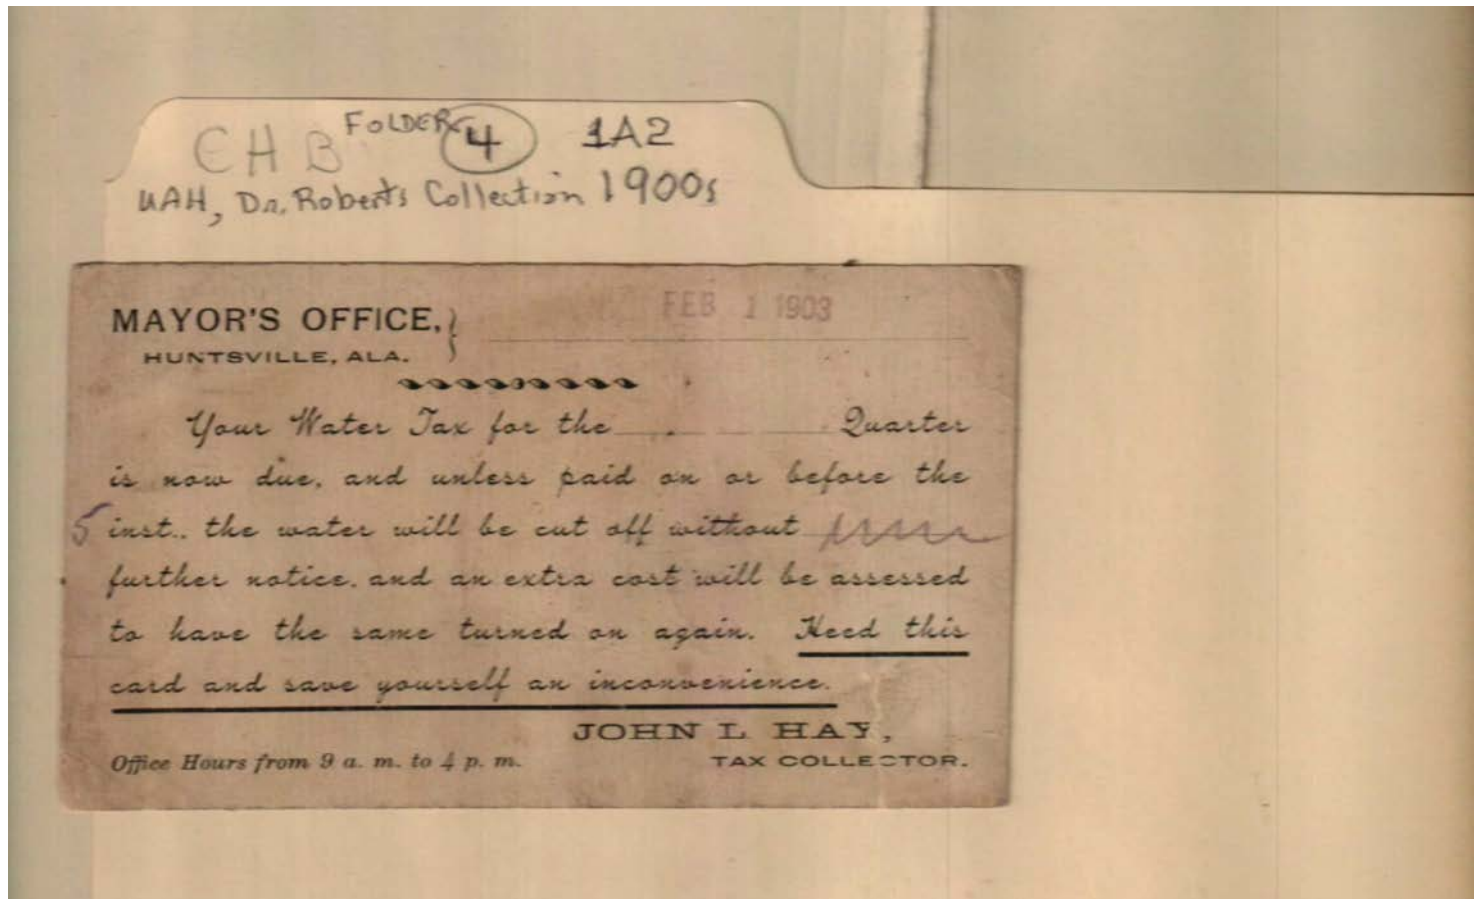 CHB FOLDER 4 1A2
UAH, Dr. Roberts Collection 1900s
MAYOR'S OFFICE,
HUNTSVILLE, ALA.
FEB 1 1903
Your Water Tax for the Quarter
is now due, and unless paid on or before the
5 inst., the water will be cut off without
further notice, and an extra cost will be assessed
to have the same turned on again. Heed this
card and save yourself an inconvenience.
JOHN L HAY,
Office Hours from 9 a. m. to 4 p. m. TAX COLLECTOR.